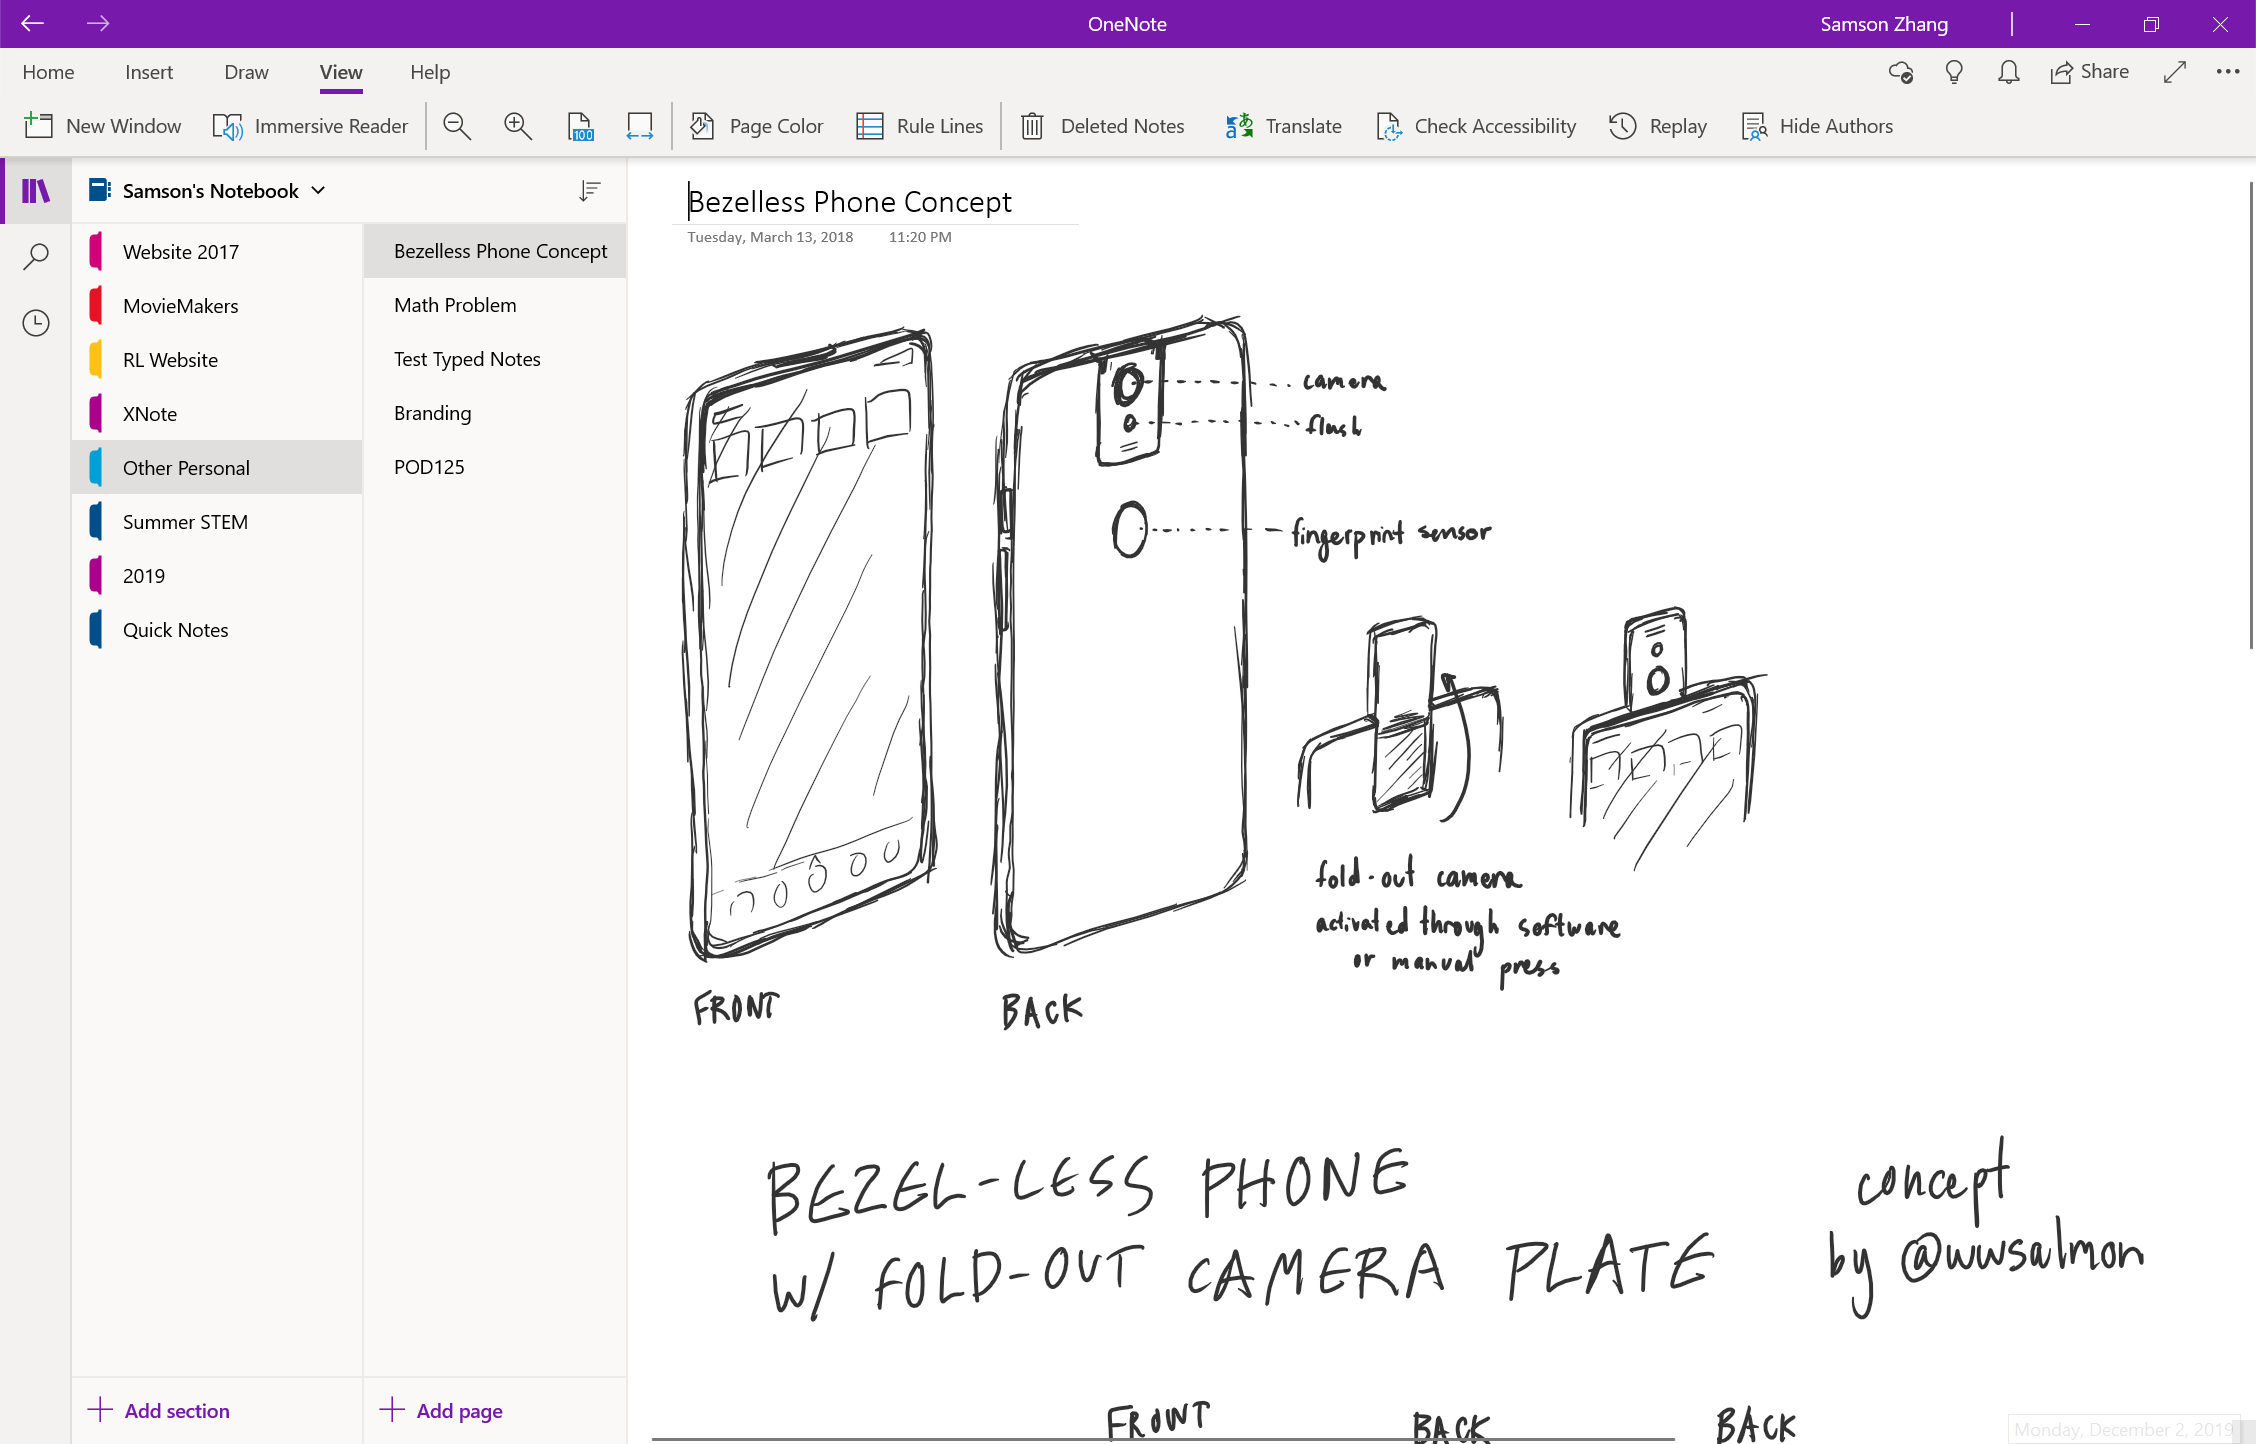 OneNote
Samson Zhang
Home Insert Draw View Help
Share
New Window Immersive Reader 100 Page Color Rule Lines Deleted Notes Translate Check Accessibility Replay Hide Authors
Samson's Notebook
Website 2017
MovieMakers
RL Website
XNote
Other Personal
Summer STEM
2019
Quick Notes
Add section
Bezelless Phone Concept
Math Problem
Test Typed Notes
Branding
POD125
Add page
Bezelless Phone Concept
Tuesday, March 13, 2018 11:20 PM
camera
flash
fingerprint sensor
fold-out camera
activated through software
or manual press
FRONT
BACK
BEZEL-LESS PHONE
W/ FOLD-OUT CAMERA PLATE
concept
by @wwsalmon
FRONT
BACK
BACK
Monday, December 2, 2019